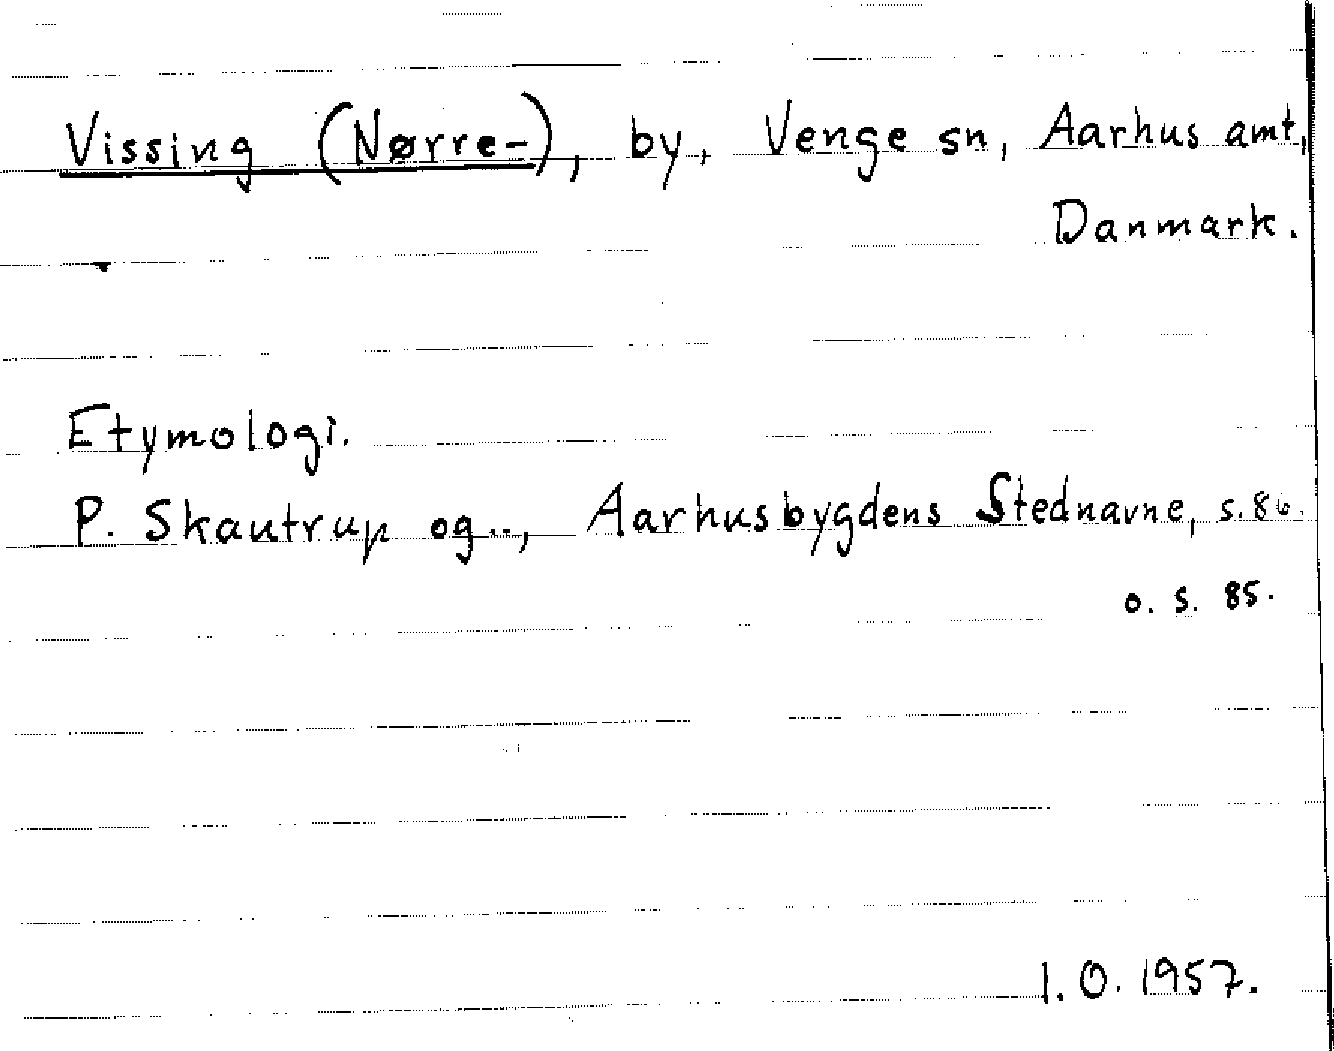 Vissing (Nørre-), by, Venge sn, Aarhus amt,
Danmark.
Etymologi.
P. Skautrup og.., Aarhusbygdens Stednavne, s.86.
o. s. 85.
I. O. 1957.